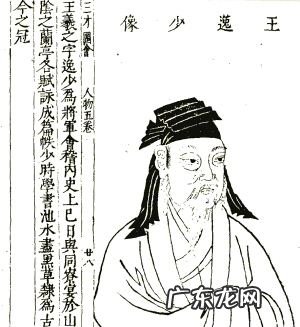 王逸少像
三才圖會 人物五卷 廿八
王羲之字逸少為將軍會稽內史上巳日與同寮宴於山
陰之蘭亭各賦詠成篇帙少時學書池水盡黑草隸為古
今之冠
广东龙网